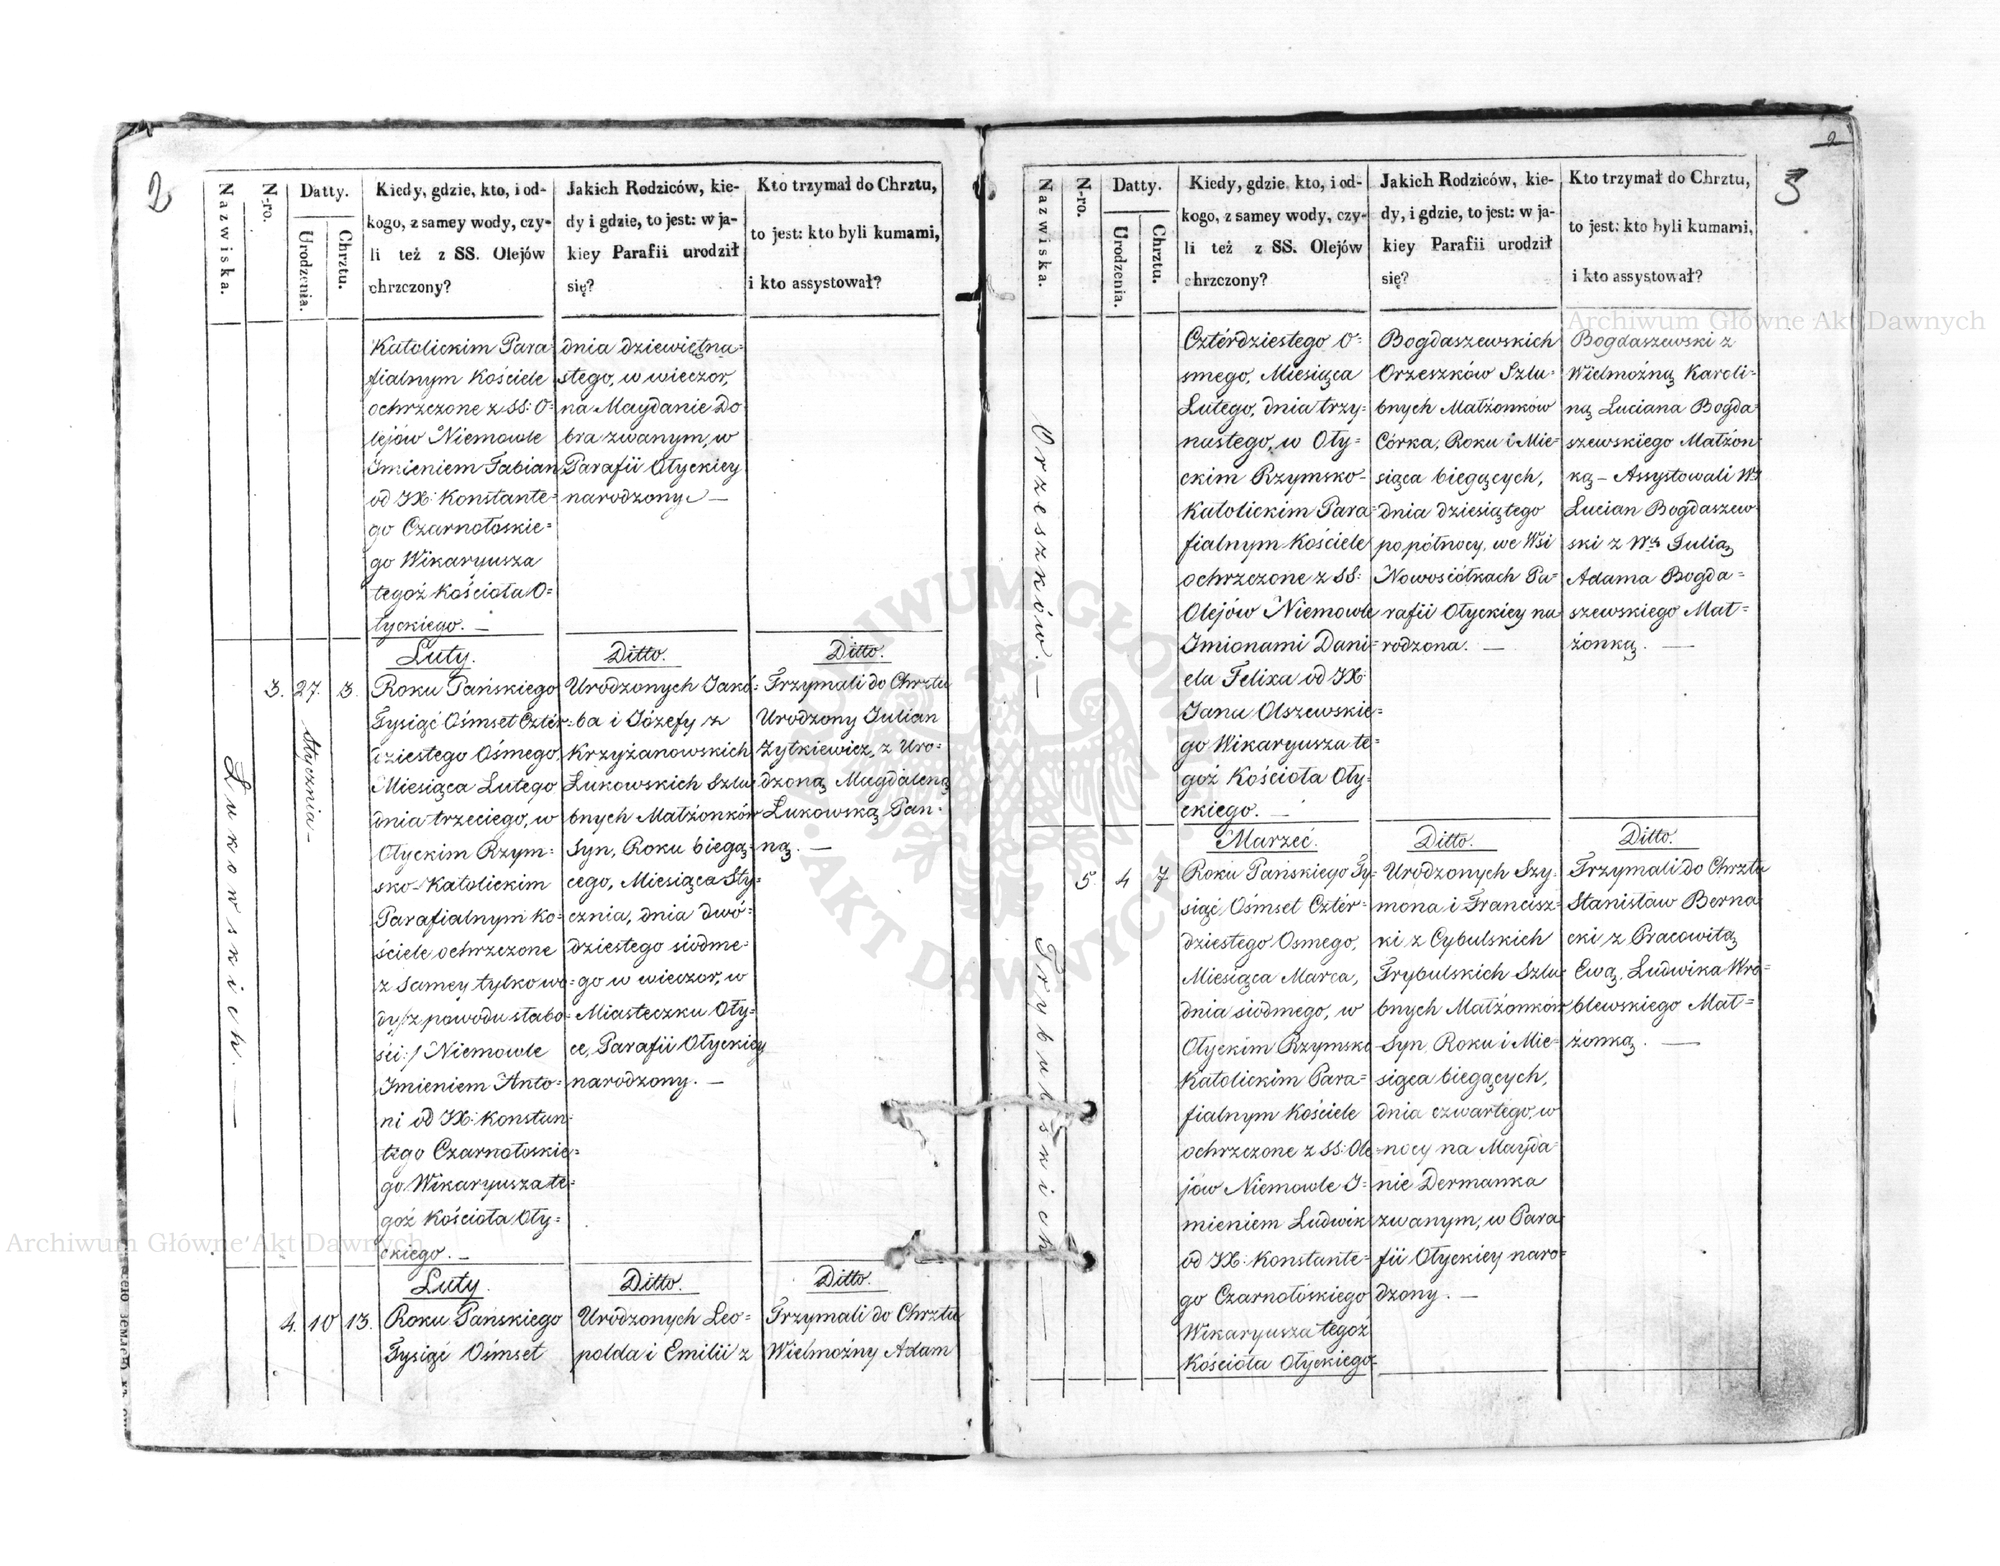 2
Nazwiska.
N-ro.
Datty.
Urodzenia.
Chrztu.
Kiedy, gdzie, kto, i od-
kogo, z samey wody, czy-
li też z SS. Olejów
chrzczony?
Jakich Rodziców, kie-
dy i gdzie, to jest: w ja-
kiey Parafii urodził
się?
Kto trzymał do Chrztu,
to jest: kto byli kumami,
i kto assystował?
Katolickim Para-
fialnym Kościele
ochrzczone z SS: O=
lejów Niemowle
Imieniem Fabian
od JX: Konstante=
go Czarnołoskie=
go Wikaryusza
tegoż Kościoła O=
łyckiego. —
dnia dziewiętna=
stego, w wieczor,
na Maydanie Do
bra zwanym, w
Parafii Ołyckiey
narodzony. —
Łukowskich. —
3.
27.
Stycznia —
3.
Luty.
Roku Pańskiego
Tysiąć Ośmset Czter=
dziestego Ośmego,
Miesiąca Lutego
dnia trzeciego, w
Ołyckim Rzym=
sko-Katolickim
Parafialnym Ko=
ściele ochrzczone
z samey tylko wo=
dy /:z powodu słabo=
ści:/ Niemowle
Imieniem Anto=
ni od JX: Konstan=
tego Czarnołoskie=
go Wikaryusza te=
goż Kościoła Oły=
ckiego. —
Ditto.
Urodzonych Jakó=
ba i Józefy z
Krzyżanowskich
Łukowskich Szlu
bnych Małżonków
Syn, Roku biegą=
cego, Miesiąca Sty=
cznia, dnia dwó=
dziestego siódme=
go w wieczor, w
Miasteczku Oły=
ce, Parafii Ołyckiey
narodzony. —
Ditto.
Trzymali do Chrztu
Urodzony Julian
Żytkiewicz, z Uro=
dzoną Magdaleną
Łukowską Pan=
ną. —
4.
10
13.
Luty.
Roku Pańskiego
Tysiąć Ośmset
Ditto.
Urodzonych Leo=
polda i Emilii z
Ditto.
Trzymali do Chrztu
Wielmożny Adam
2
3
Nazwiska.
N-ro.
Datty.
Urodzenia.
Chrztu.
Kiedy, gdzie, kto, i od-
kogo, z samey wody, czy-
li też z SS. Olejów
chrzczony?
Jakich Rodziców, kie-
dy, i gdzie, to jest: w ja-
kiey Parafii urodził
się?
Kto trzymał do Chrztu,
to jest: kto byli kumami,
i kto assystował?
Orzeszków. —
Cztérdziestego O=
smego, Miesiąca
Lutego, dnia trzy=
nastego, w Oły=
ckim Rzymsko-
Katolickim Para=
fialnym Kościele
ochrzczone z SS:
Olejów Niemowle
Imionami Dani=
ela Felixa od JX:
Jana Olszewskie=
go Wikaryusza te=
goż Kościoła Oły=
ckiego. —
Bogdaszewskich
Orzeszków Szlu=
bnych Małżonków
Córka, Roku i Mie=
siąca biegących,
dnia dziesiątego
po północy, we Wsi
Nowosiółkach Pa=
rafii Ołyckiey na
rodzona. —
Bogdaszewski z
Wielmożną Karoli=
ną Luciana Bogda
szewskiego Małżon
ką — Assystowali Wż
Lucian Bogdaszew
ski z Wną Julią
Adama Bogda=
szewskiego Mał=
żonką. —
Trybulskich —
5
4
7
Marzeć.
Roku Pańskiego Ty=
siąć Ośmset Cztér=
dziestego Osmego,
Miesiąca Marca,
dnia siodmego, w
Ołyckim Rzymsko
Katolickim Para=
fialnym Kościele
ochrzczone z SS: Ole
jów Niemowle I=
mieniem Ludwik
od JX: Konstante=
go Czarnołoskiego
Wikaryusza tegoż
Kościoła Ołyckiego.
Ditto.
Urodzonych Szy=
mona i Francisz=
ki z Cybulskich
Trybulskich Szlu
bnych Małżonków
Syn, Roku i Mie=
siąca biegących,
dnia czwartego, w
nocy na Mayda
nie Dermanka
zwanym, w Para
fii Ołyckiey naro=
dzony. —
Ditto.
Trzymali do Chrztu
Stanisław Berna
cki z Pracowitą
Ewą, Ludwika Wró=
blewskiego Mał=
żonką. —
Archiwum Główne Akt Dawnych
Archiwum Główne Akt Dawnych
ARCHIWUM GŁÓWNE AKT DAWNYCH